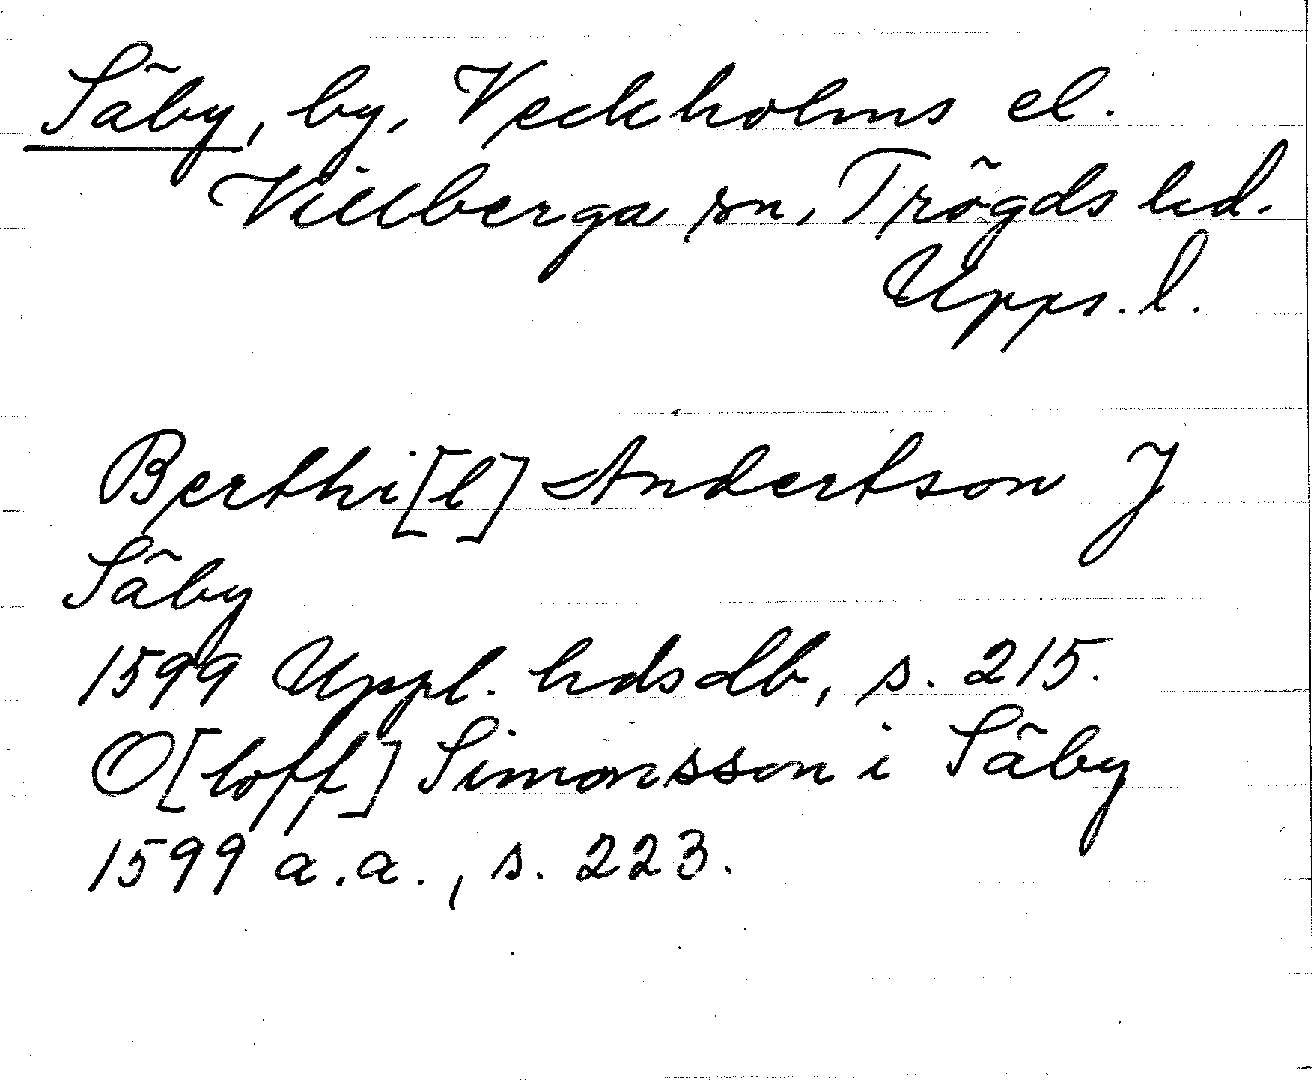 Säby, by, Veckholms el.
Villberga sn, Trögds hd.
Upps. l.
Berthi[l] Andertson J
Säby
1599 Uppl. hdsdb, s. 215.
O[loff] Simonsson i Säby
1599 a.a., s. 223.